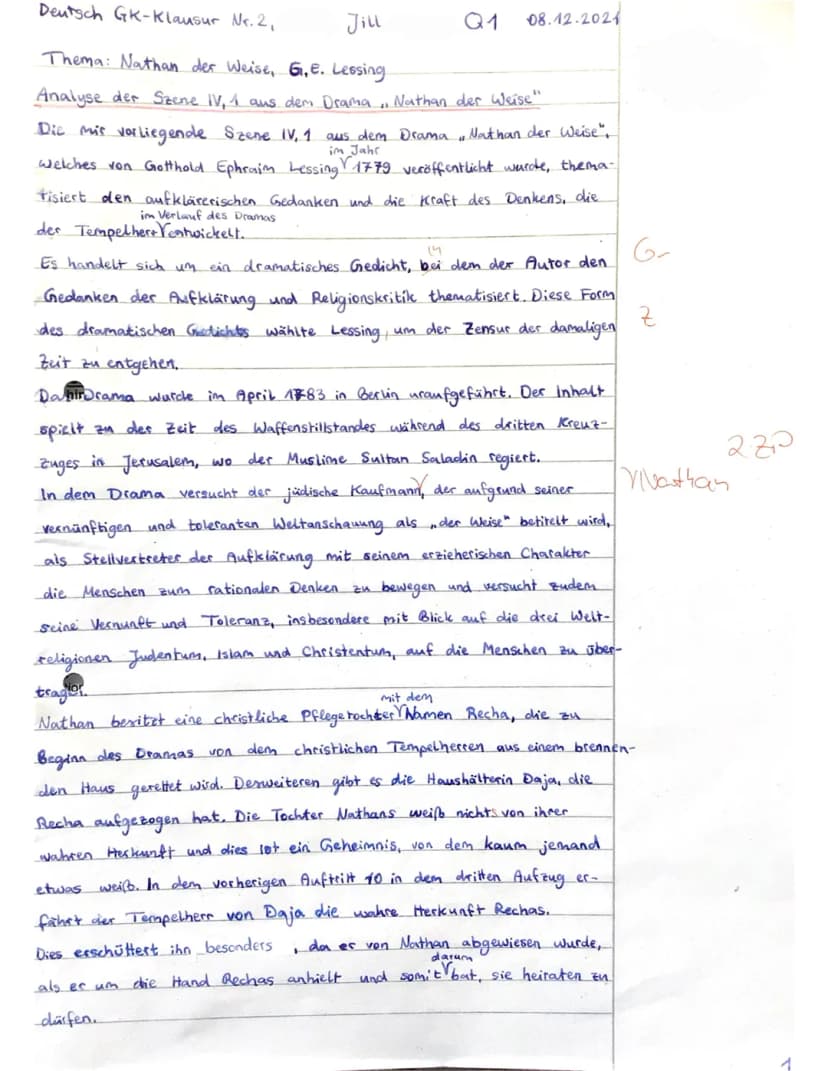 Deutsch GK-Klausur Nr. 2, Jill Q1 08.12.2021
Thema: Nathan der Weise, G.E. Lessing
Analyse der Szene IV, 1 aus dem Drama „Nathan der Weise"
Die mir vorliegende Szene IV, 1 aus dem Drama „Nathan der Weise",
im Jahr
welches von Gotthold Ephraim Lessing 1779 veröffentlicht wurde, thema-
tisiert den aufklärerischen Gedanken und die Kraft des Denkens, die
im Verlauf des Dramas
der Tempelherr entwickelt.
Es handelt sich um ein dramatisches Gedicht, bei dem der Autor den G
Gedanken der Aufklärung und Religionskritik thematisiert. Diese Form
des dramatischen Gedichts wählte Lessing, um der Zensur der damaligen Z
Zeit zu entgehen.
Drama wurde im April 1783 in Berlin uraufgeführt. Der Inhalt
spielt zu der Zeit des Waffenstillstandes während des dritten Kreuz-
zuges in Jerusalem, wo der Muslime Sultan Saladin regiert.
In dem Drama versucht der jüdische Kaufmann, der aufgrund seiner Nathan
vernünftigen und toleranten Weltanschauung als „der Weise" betitelt wird,
als Stellvertreter der Aufklärung mit seinem erzieherischen Charakter
die Menschen zum rationalen Denken zu bewegen und versucht zudem
seine Vernunft und Toleranz, insbesondere mit Blick auf die drei Welt-
religionen Judentum, Islam und Christentum, auf die Menschen zu über-
Nathan besitzt eine christliche Pflegetochter mit dem Namen Recha, die zu
Beginn des Dramas von dem christlichen Tempelherren aus einem brennen-
den Haus gerettet wird. Desweiteren gibt es die Haushälterin Daja, die
Recha aufgezogen hat. Die Tochter Nathans weiß nichts von ihrer
wahren Herkunft und dies ist ein Geheimnis, von dem kaum jemand
etwas weiß. In dem vorherigen Auftritt 10 in dem dritten Aufzug er-
fährt der Tempelherr von Daja die wahre Herkunft Rechas.
Dies erschüttert ihn besonders, da er von Nathan abgewiesen wurde,
darum
als er um die Hand Rechas anhielt und somit bat, sie heiraten zu
dürfen.
1